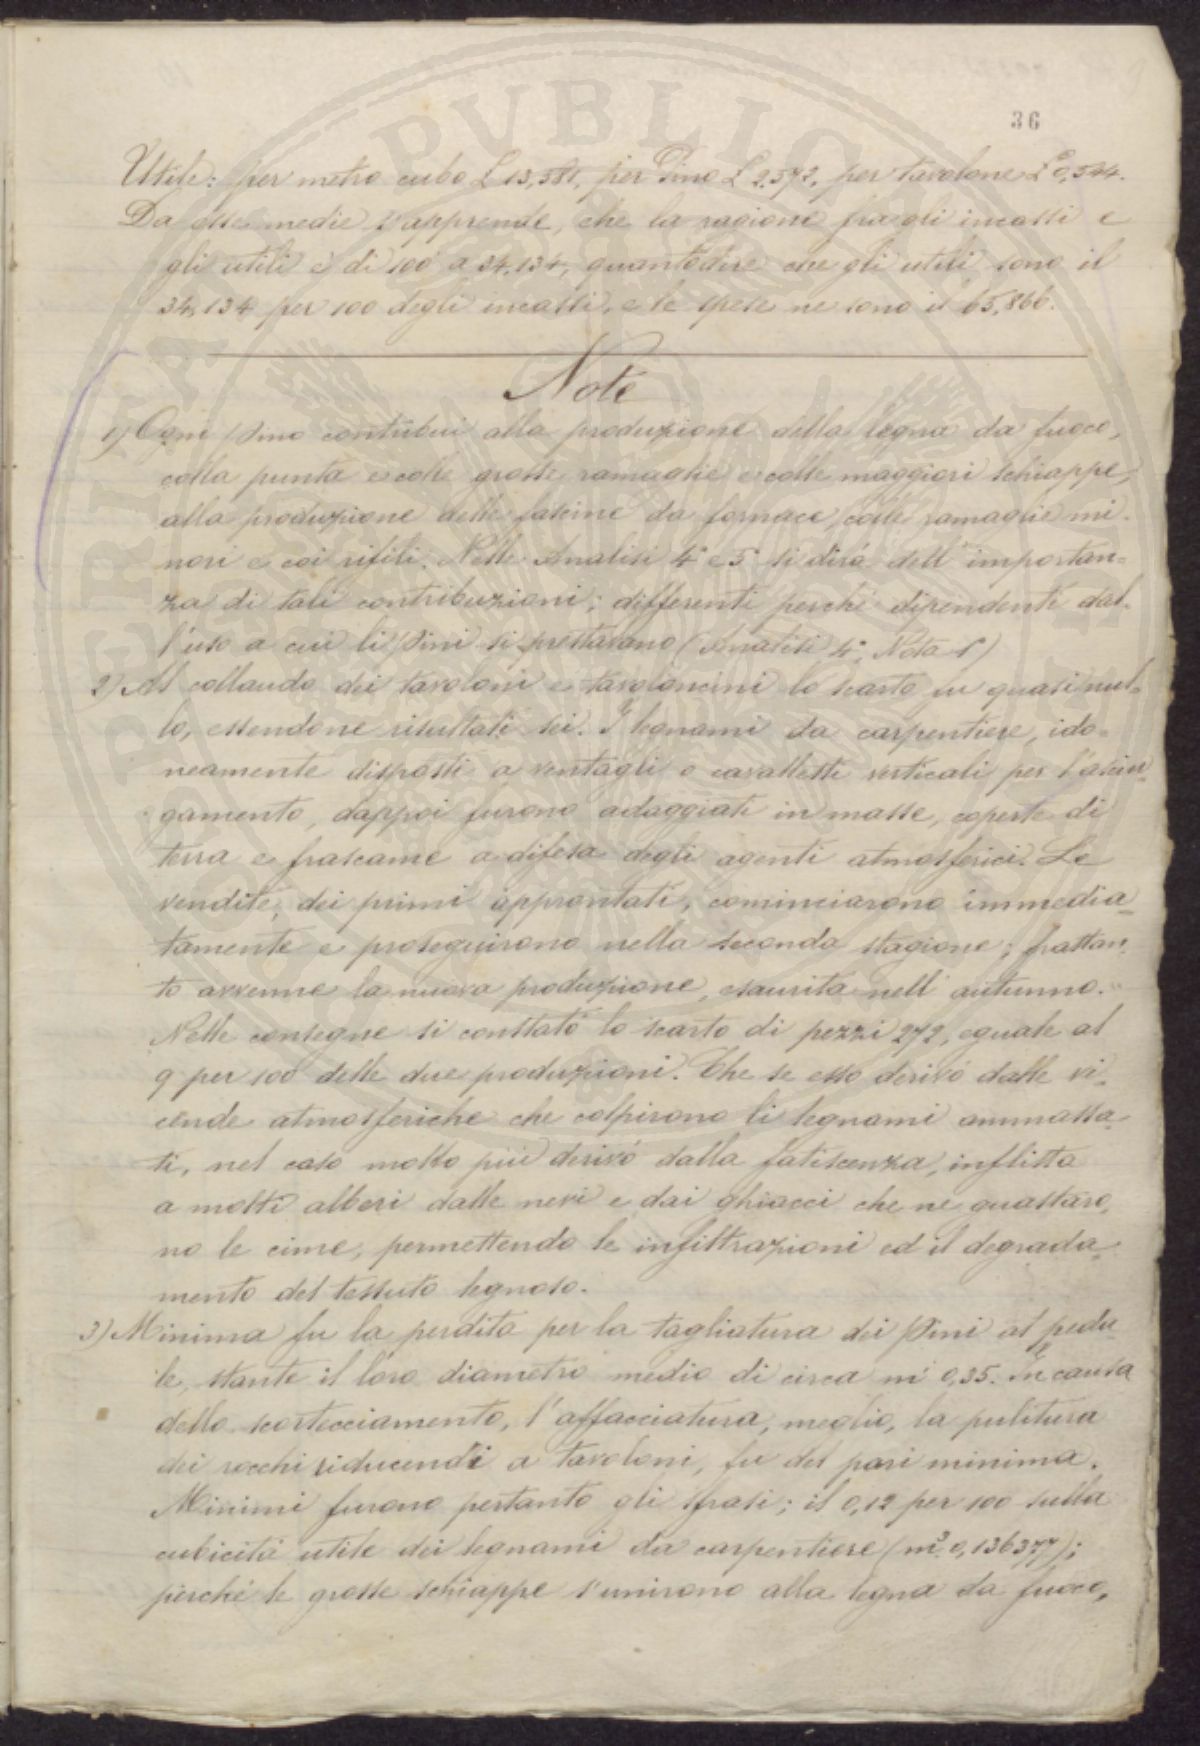 36
Utile: per metro cubo L 13,581, per Pino L 2,572, per tavolone L 0,544.
Da esse medie s'apprende, che la ragione fra gli incassi e
gli utili è di 100 a 34,134, quantodire che gli utili sono il
34,134 per 100 degli incassi, e le spese ne sono il 65,866.
Note
1) Ogni Pino contribuì alla produzione della legna da fuoco,
colla punta e colle grosse ramaglie e colle maggiori schiappe,
alla produzione delle fascine da fornace, colle ramaglie mi-
nori e coi rifili. Nelle Analisi 4ª e 5ª si dirà dell'importan-
za di tali contribuzioni; differenti perché dipendenti dal-
l'uso a cui li Pini si prestavano (Analisi 4ª, Nota 1ª)
2) Al collaudo dei tavoloni e tavoloncini lo scarto fu quasi nul-
lo, essendone risultati sei. I legnami da carpentiere, ido-
neamente disposti a ventagli o cavalletti verticali per l'asciu-
gamento, dappoi furono adaggiati in masse, coperte di
terra e frascame a difesa degli agenti atmosferici. Le
vendite, dei primi approntati, cominciarono immedia-
tamente e proseguirono nella seconda stagione; frattan-
to avvenne la nuova produzione, esaurita nell'autunno.
Nelle consegne si constatò lo scarto di pezzi 272, eguale al
9 per 100 delle due produzioni. Che se esso derivò dalle vi-
cende atmosferiche che colpirono li legnami ammassa-
ti, nel caso molto più derivò dalla fatiscenza, inflitta
a molti alberi dalle nevi e dai ghiacci che ne guastaro-
no le cime, permettendo le infiltrazioni ed il degrada-
mento del tessuto legnoso.
3) Minima fu la perdita per la tagliatura dei Pini al peda-
le, stante il loro diametro medio di circa m 0,35. In causa
dello scortecciamento, l'affacciatura, meglio, la pulitura
dei rocchi riducendi a tavoloni, fu del pari minima.
Minimi furono pertanto gli sfrasi; il 0,12 per 100 sulla
cubicità utile dei legnami da carpentiere (m³ 0,136377);
perché le grosse schiappe s'unirono alla legna da fuoco,